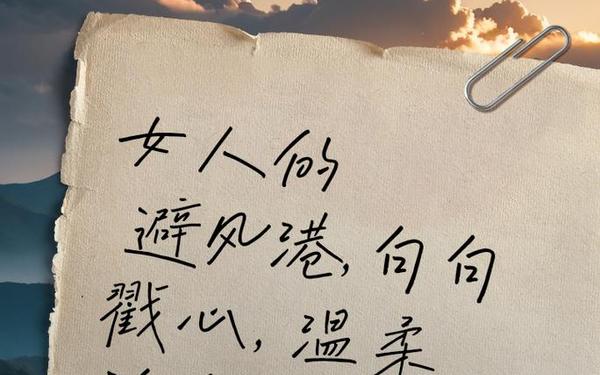 女人的
避风港,句句
戳心,温柔